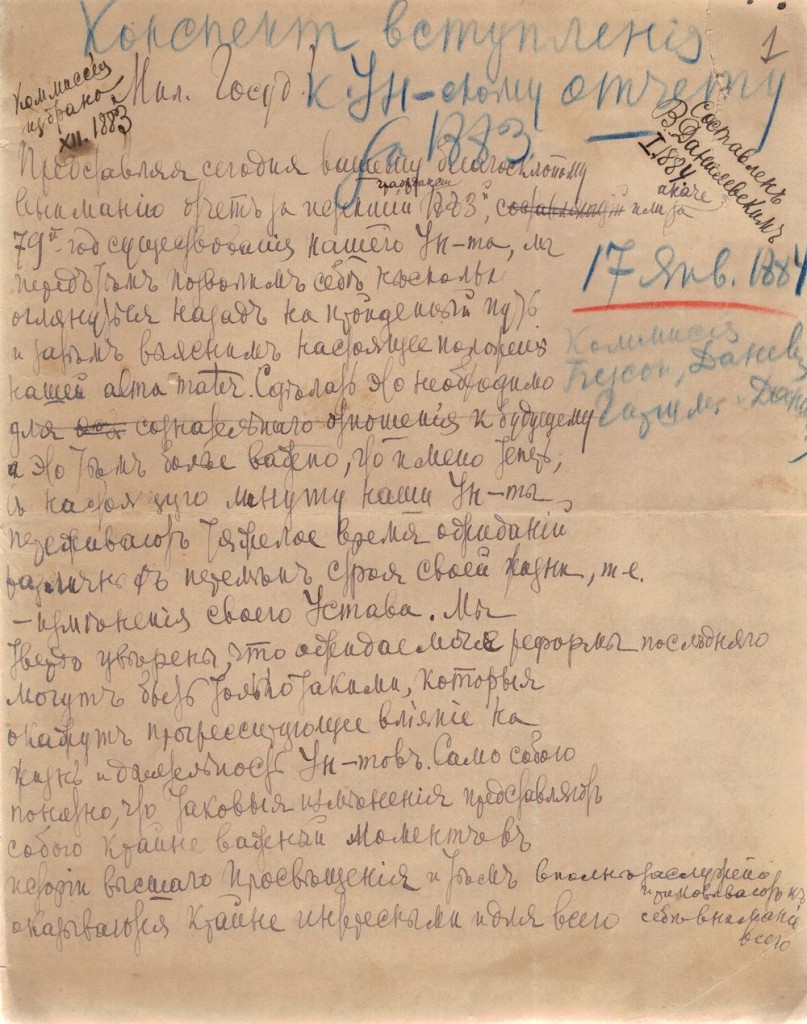 Конспект вступленія
1
къ Ун-скому отчету
за 1883.
Коммиссія
избрана
XII. 1883
Мил. Госуд.!
Составленъ
В. Данилевскимъ
I. 1884
17 Янв. 1884
Коммисія
Представляя сегодня вашему благосклонному
вниманію отчетъ за истекшій 1883й, составляющій или за
гражданскій
иначе
79й годъ существованія нашего Ун-та, мы
передъ тѣмъ позволимъ себѣ нѣсколько
оглянуться назадъ на пройденный путь
и затѣмъ выяснимъ настоящее положеніе
нашей alma mater. Сдѣлать это необходимо
для сознательнаго отношенія къ будущему
и это тѣмъ болѣе важно, что именно теперь,
въ настоящую минуту наши Ун-ты
переживаютъ тяжелое время ожиданій
различныхъ перемѣнъ строя своей жизни, т.е.
- измѣненія своего Устава. Мы
твердо увѣрены, что ожидаемыя реформы послѣдняго
могутъ быть только такими, которыя
окажутъ прогрессирующее вліяніе на
жизнь и дѣятельность Ун-товъ. Само собою
понятно, что таковыя измѣненія представляютъ
собою крайне важный моментъ въ
исторіи высшаго просвѣщенія и тѣмъ вполнѣ заслуженно
приковываютъ къ
оказываются крайне интересными и для всего себѣ вниманіе
всего